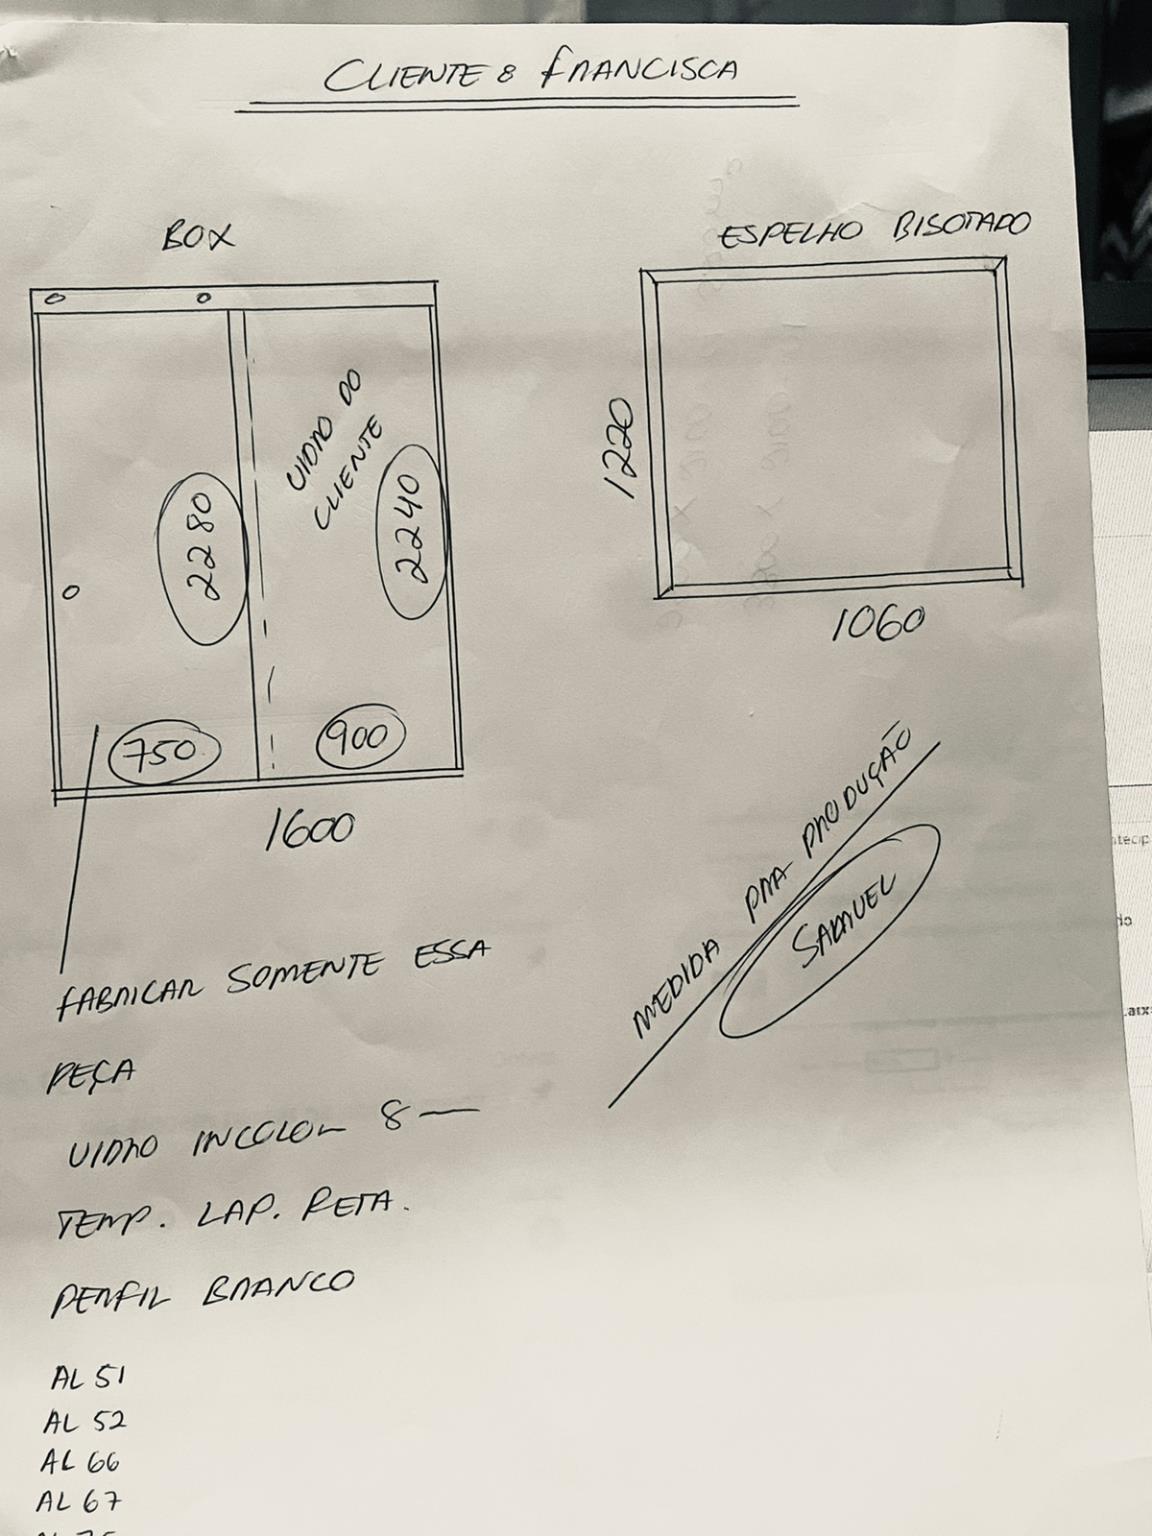 CLIENTE: FRANCISCA
BOX
ESPELHO BISOTADO
VIDRO DO
CLIENTE
2280
2240
750
900
1600
1220
1060
MEDIDA PRA PRODUÇÃO
SAMUEL
FABRICAR SOMENTE ESSA
PEÇA
VIDRO INCOLOR 8
TEMP. LAP. RETA.
PERFIL BRANCO
AL 51
AL 52
AL 66
AL 67